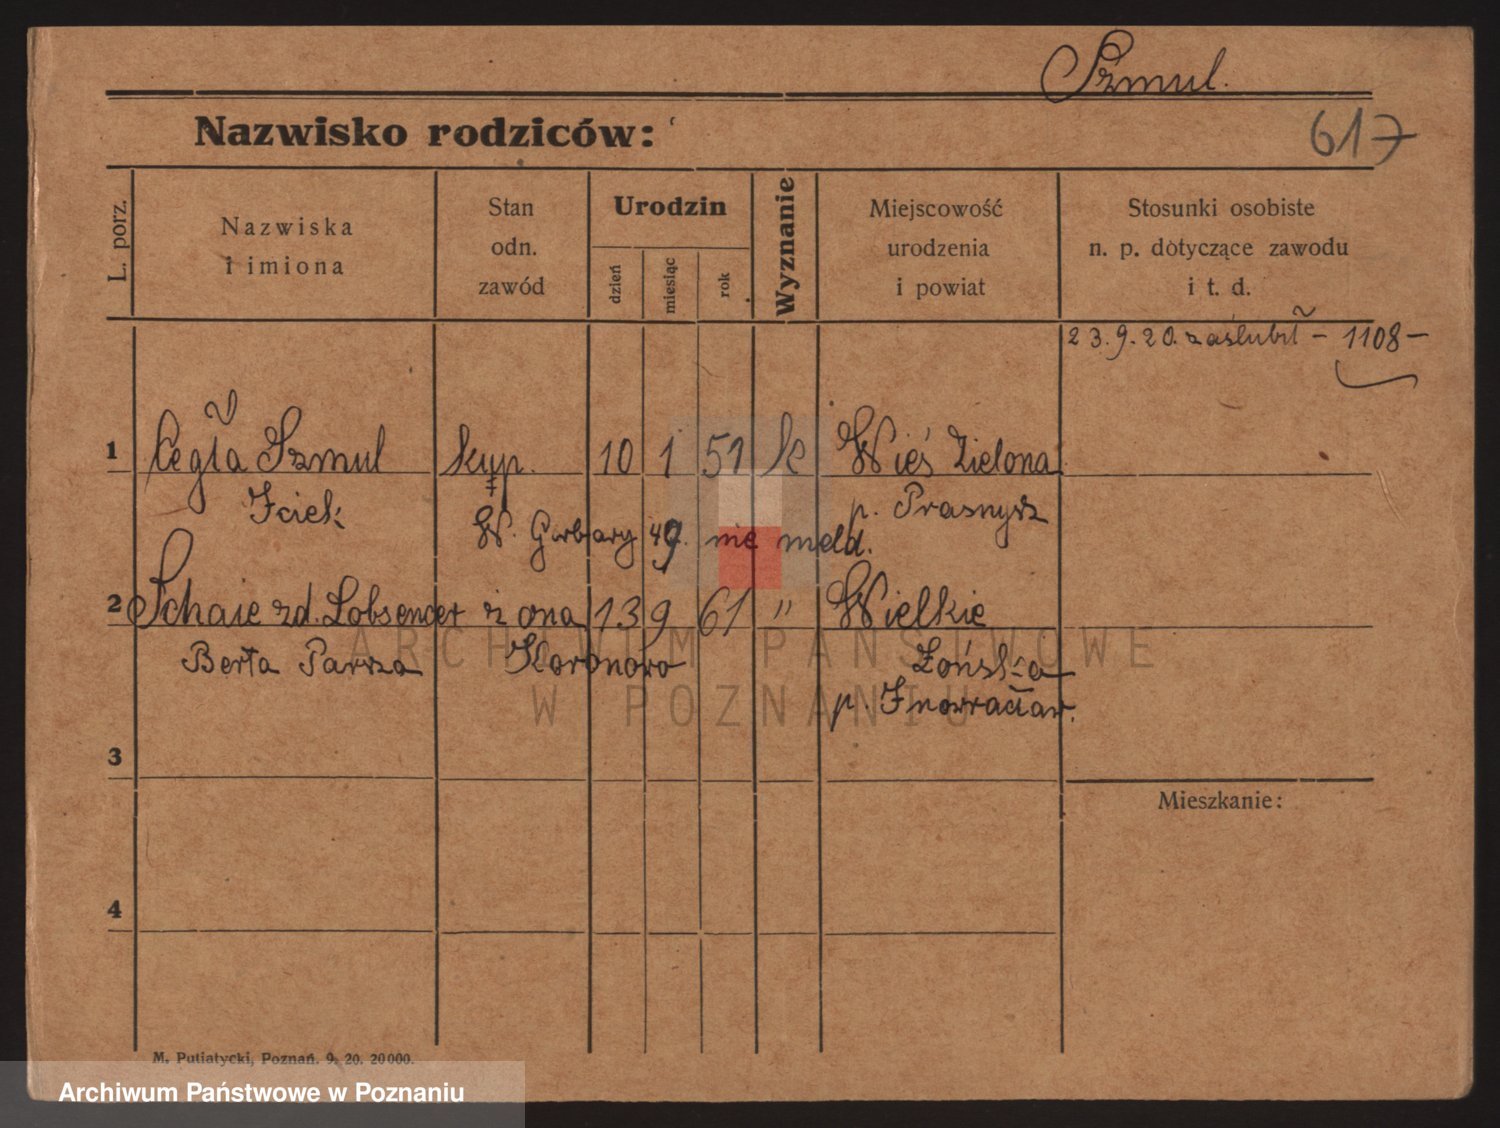 Szmul.
Nazwisko rodziców:
617
L. porz.
Nazwiska
i imiona
Stan
odn.
zawód
Urodzin
dzień
miesiąc
rok
Wyznanie
Miejscowość
urodzenia
i powiat
Stosunki osobiste
n. p. dotyczące zawodu
i t. d.
23.9.20. zaślubił – 1108 –
1 Cegła Szmul kup. 10 1 51 Wieś Zielona
Iciek p. Prasnysz
W. Garbary 49. nie meld.
2 zd. Lobsender żona 13 9 61 " Wielkie
Berta Koronowo
p. Inowracław.
3
4
Mieszkanie:
M. Putiatycki, Poznań. 9. 20. 20000.
ARCHIWUM PAŃSTWOWE
W POZNANIU
Archiwum Państwowe w Poznaniu